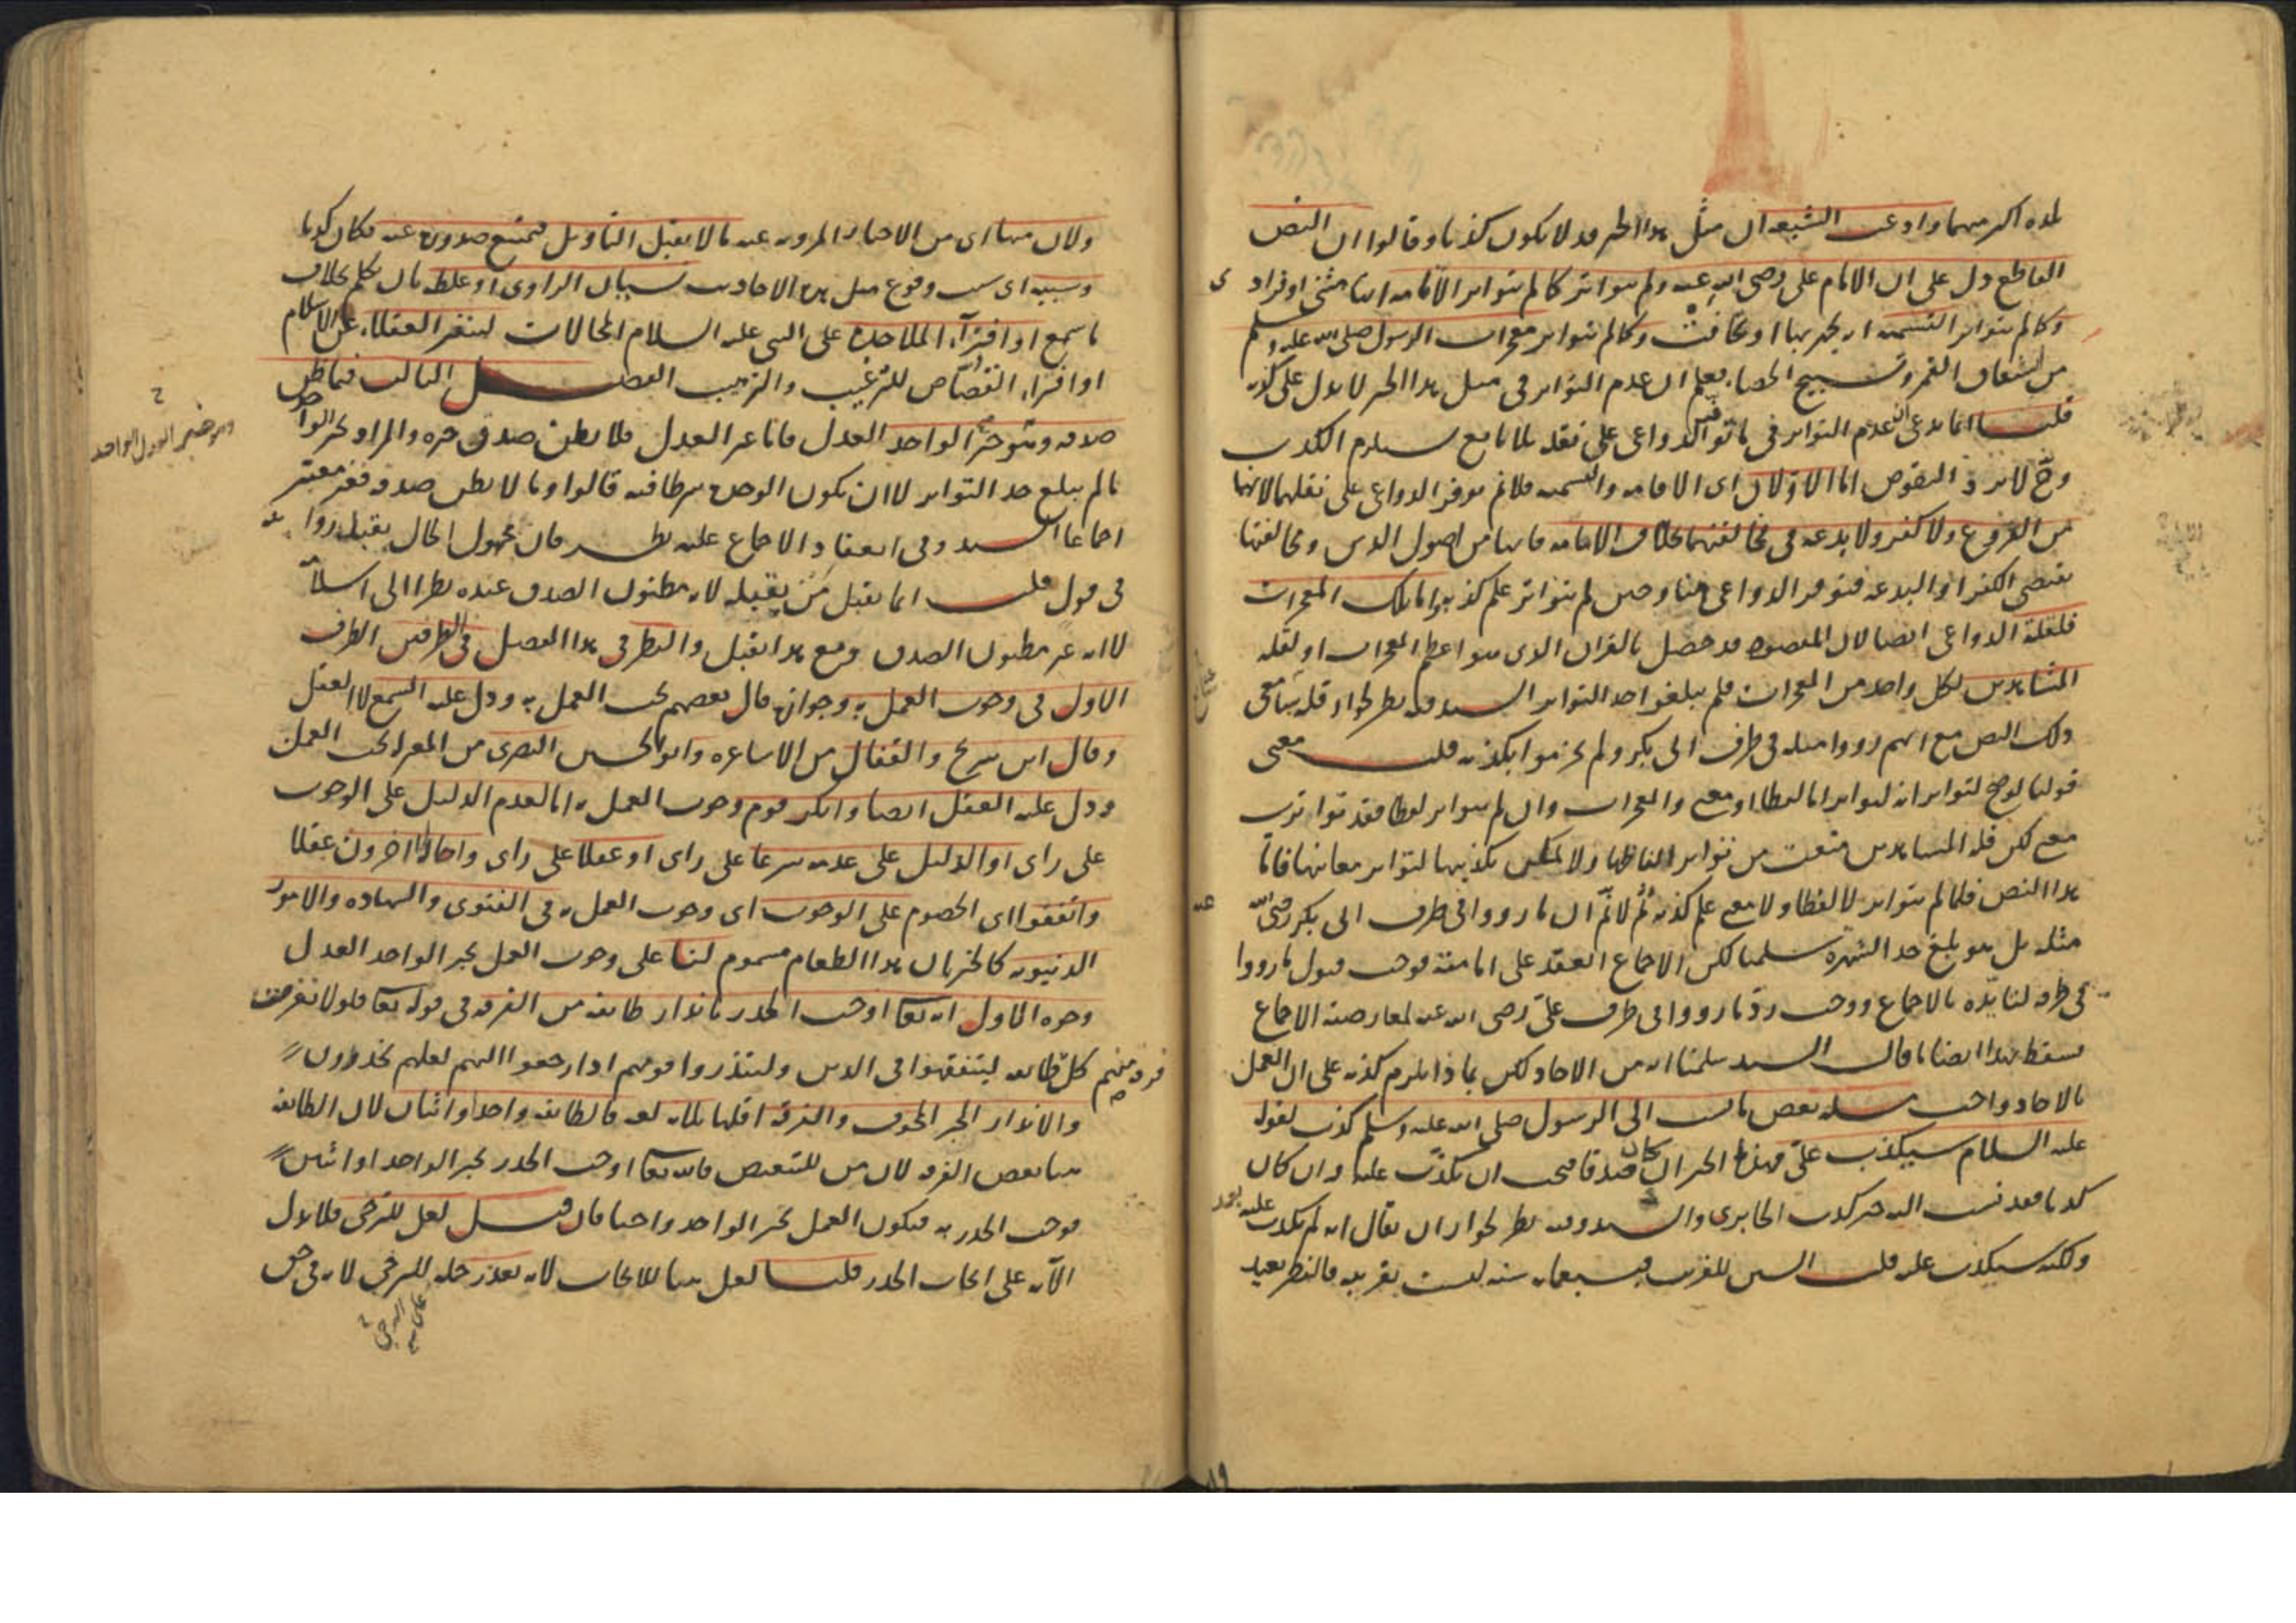 بلده اكبر منهما وادعت الشيعة ان مثل هذا الخبر قد لا يكون كذبا وقالوا ان النص
القاطع دل على ان الامام على رضى الله عنه ولم يتواتر كما لم يتواتر الاقامة انها مثنى او فراد ى
وكما لم يتواتر التسمية انه يجهر بها او يخافت وكما لم يتواتر معجزات الرسول صلى الله عليه وسلم
من انشقاق القمر وتسبيح الحصا فعلم ان عدم التواتر فى مثل هذا الخبر لا يدل على كذبه
قلنا انما ندعى ان عدم التواتر فى ما توفر الدواعى على نقله بلا مانع يستلزم الكذب
وح لا يرد النقوض اما الاولان اى الاقامة والتسمية فلا نم توفر الدواعى على نقلهما لانهما
من الفروع ولا كفر ولا بدعة فى مخالفتهما بخلاف الامامة فانها من اصول الدين ومخالفتها
يقتضى الكفر او البدعة فتوفر الدواعى هنا وحين لم يتواتر علم كذبه واما تلك المعجزات
فلقلة الدواعى ايضا لان المقصود قد حصل بالقران الذى هو اعظم المعجزات او لقلة
المشاهدين لكل واحد من المعجزات فلم يبلغوا حد التواتر السيد وفيه نظر لجواز قلة سامعى
ذلك النص مع انهم رووا مثله فى طرف ابى بكر ولم يجزموا بكذبه قلت معنى
قولنا لو صح لتواتر انه لتواتر اما لفظا او معنى والمعجزات وان لم يتواتر لفظا فقد تواترت
معنى لكن قلة المشاهدين منعت من تواتر الفاظها ولا يمكن تكذيبها لتواتر معانيها فاما
هذا النص فلما لم يتواتر لا لفظا ولا معنى علم كذبه ثم لا نم ان ما رووا فى طرف ابى بكر رضى الله عنه
مثله بل هو بلغ حد الشهرة سلمنا لكن الاجماع انعقد على امامته فوجب قبول ما رووا
فى طرفه لتايده بالاجماع ووجب رد ما رووا فى طرف على رضى الله عنه لمعارضة الاجماع
فسقط بهذا ايضا ما قال السيد سلمنا انه من الاحاد لكن بما ذا يلزم كذبه على ان العمل
بالاحاد واجب مسئلة بعض ما نسب الى الرسول صلى الله عليه وسلم كذب لقوله
عليه السلام سيكذب على فهذا الخبر ان كان صدقا فيجب ان يكذب عليه وان كان
كذبا فقد نسب اليه خبر كذب الجابري والسيد وفيه نظر لجواز ان يقال انه لم يكذب عليه بعد
ولكنه سيكذب عليه قلت السين للقريب وسبعمائة سنة ليست بقريبة فالنظر بعيد
ولان منها اى من الاخبار المروية عنه ما لا يقبل التاويل فيمتنع صدوره عنه فكان كذبا
وسببه اى سبب وقوع مثل هذه الاحاديث نسيان الراوى او غلطه بان تكلم بخلاف
ما سمع او افتراء الملاحدة على النبى عليه السلام المحالات لينفر العقلاء عن الاسلام
او افتراء القصاص للترغيب والترهيب الفصل الثالث فيما ظن
صدقه وهو خبر الواحد العدل فاما غير العدل فلا يظن صدق خبره والمراد بخبر الواحد
ما لم يبلغ حد التواتر لا ان يكون الوحدة شرطا فيه قالوا وما لا يظن صدقه فغير معتبر
اجماعا السيد وفى انعقاد الاجماع عليه نظر فان مجهول الحال يقبل روايته
فى قول قلت انما يقبل من يقبله لانه مظنون الصدق عنده نظرا الى اسلامه
لا انه غير مظنون الصدق ومع هذا يقبل والنظر فى هذا الفصل فى الطرفين الطرف
الاول فى وجوب العمل به وجوازه قال بعضهم يجب العمل به ودل عليه السمع لا العقل
وقال ابن سريج والقفال من الاشاعرة وابو الحسين البصرى من المعتزلة يجب العمل
ودل عليه العقل ايضا وانكر قوم وجوب العمل به اما لعدم الدليل على الوجوب
على راى او الدليل على عدمه شرعا على راى او عقلا على راى واحاله اخرون عقلا
واتفقوا اى الخصوم على الوجوب اى وجوب العمل به فى الفتوى والشهادة والامور
الدنيوية كالخبر بان هذا الطعام مسموم لنا على وجوب العمل بخبر الواحد العدل
وجوه الاول انه تعالى اوجب الحذر بانذار طائفة من الفرقة فى قوله تعالى فلولا نفر من
كل فرقة منهم طائفة ليتفقهوا فى الدين ولينذروا قومهم اذا رجعوا اليهم لعلهم يحذرون
والانذار الخبر المخوف والفرقة اقلها ثلاثة لغة فالطائفة واحد او اثنان لان الطائفة
هنا بعض الفرقة لان من للتبعيض فالله تعالى اوجب الحذر بخبر الواحد او اثنين
فوجب الحذر به فيكون العمل بخبر الواحد واجبا فان قيل لعل للترجى فلا يدل
الآية على ايجاب الحذر قلنا لعل هنا للايجاب لانه تعذر حمله للترجى لانه فى حق
وهو خبر العدل الواحد